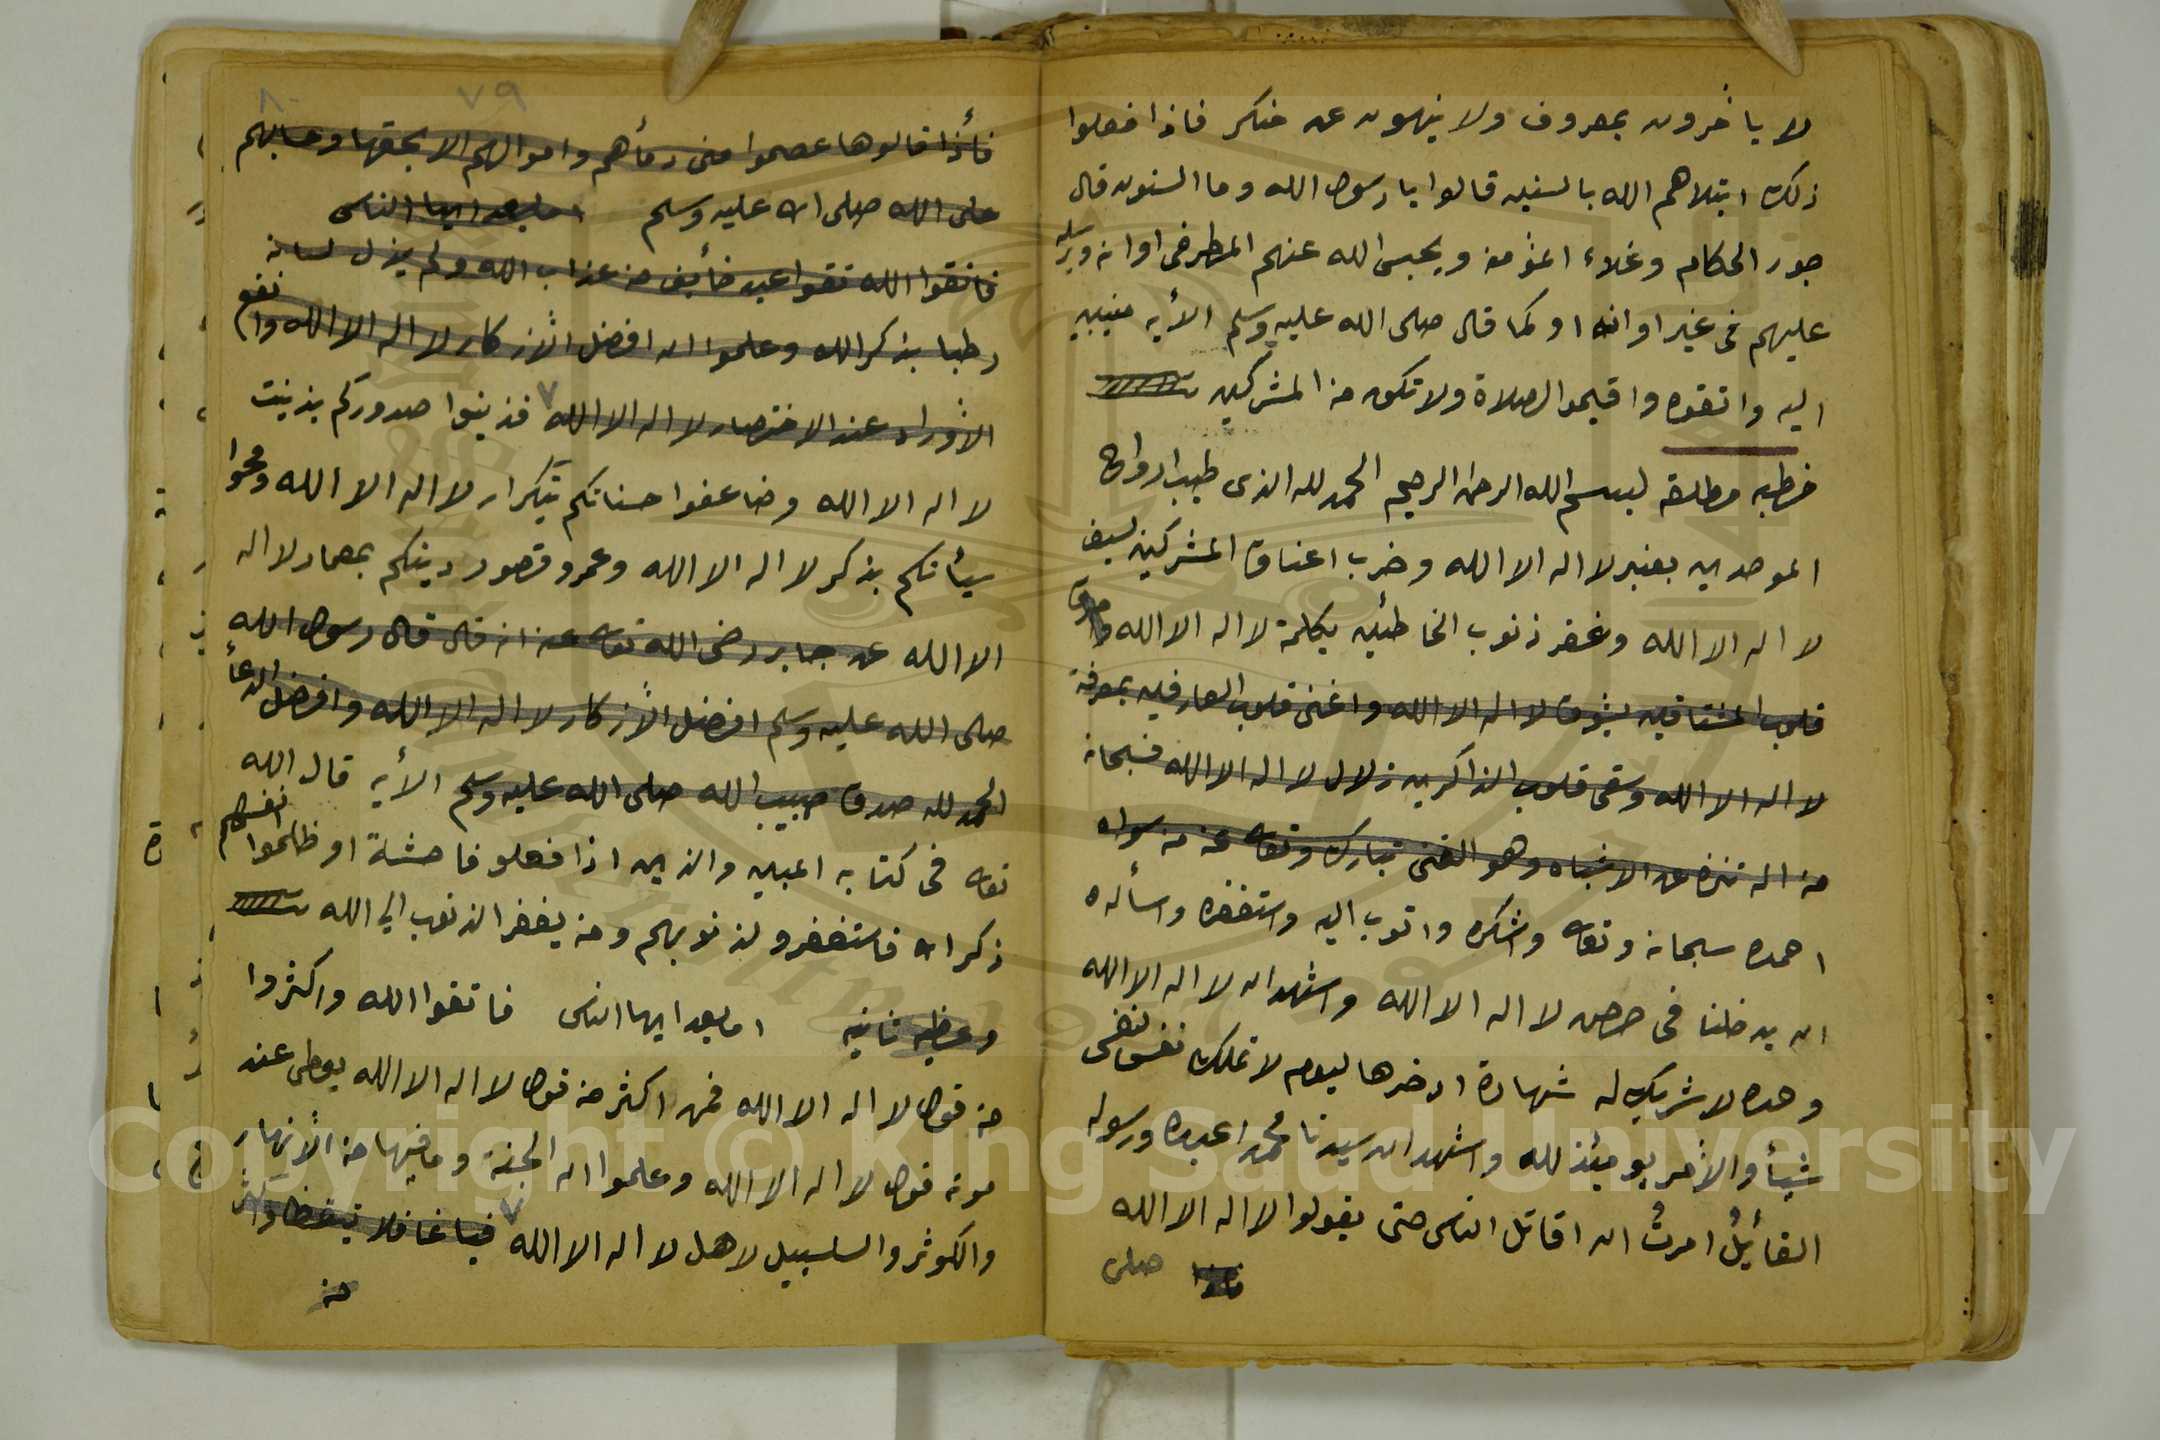 لا يأمرون بمعروف ولا ينهون عن منكر فاذا فعلوا
ذلك ابتلاهم الله بالسنين قالوا يا رسول الله وما السنون قال
جور الحكام وغلاء المؤمنه ويحبس الله عنهم المطر فى اوانه ويرسله
عليهم فى غير اوانه او كما قال صلى الله عليه وسلم الأيه منيبين
اليه واتقوه واقيموا الصلاة ولا تكون من المشركين
خطبه مطلقه بسم الله الرحمن الرحيم الحمد لله الذى طيب ارواح
الموحدين بعنبر لا اله الا الله وضرب اعناق المشركين بسيف
لا اله الا الله وغفر ذنوب الخاطئين بكلمة لا اله الا الله
قلوب المشتاقين بشوق لا اله الا الله واغنى قلوب العارفين بمعرفة
لا اله الا الله وسقى قلوب الذاكرين زلال لا اله الا الله فسبحانه
من اله تنزه عن الاشباه وهو الغنى تبارك وتعالى عن من سواه
احمده سبحانه وتعالى واشكره واتوب اليه واستغفره واسأله
ان يدخلنا فى حصن لا اله الا الله واشهد ان لا اله الا الله
وحده لا شريك له شهادة ادخرها ليوم لا تملك نفس لنفس
شيأ والأمر يومئذ لله واشهد ان سيدنا محمدا عبده ورسوله
القائل امرت ان اقاتل الناس حتى يقولوا لا اله الا الله
فاذا صلى
٧٩ ٨٠
فأذا قالوها عصموا منى دمأهم واموالهم الا بحقها وحسابهم
على الله صلى الله عليه وسلم اما بعد ايها الناس
فاتقوا الله تقوا عبد خأيف من عذاب الله ولم يزل لسانه
رطبا بذكر الله وعلموا ان افضل الأذكار لا اله الا الله وانفع
الأوراد عند الاختصار لا اله الا الله فزينوا صدوركم بزينت
لا اله الا الله وضاعفوا حسناتكم بتكرار لا اله الا الله ومحوا
سيأتكم بذكر لا اله الا الله وعمرو قصور دينكم بعماد لا اله
الا الله عن جابر رضى الله تعالى عنه انه قال قال رسول الله
صلى الله عليه وسلم افضل الأذكار لا اله الا الله وافضل الدعأ
الحمد لله صدق حبيب الله صلى الله عليه وسلم الأيه قال الله
تعالى فى كتابه المبين والذين اذا فعلو فاحشة او ظلموا انفسهم
ذكر الله فاستغفرو لذنوبهم ومن يغفر الذنوب الي الله
وعظيه ثانيه اما بعد ايها الناس فاتقوا الله واكثروا
من قول لا اله الا الله فمن اكثر من قول لا اله الا الله يعطى عند
موته قول لا اله الا الله وعلموا ان الجنة وما فيها من الأنهار
والكوثر والسلسبيل لاهل لا اله الا الله فيا غافلا تيقظ واكثر
من
Copyright © King Saud University